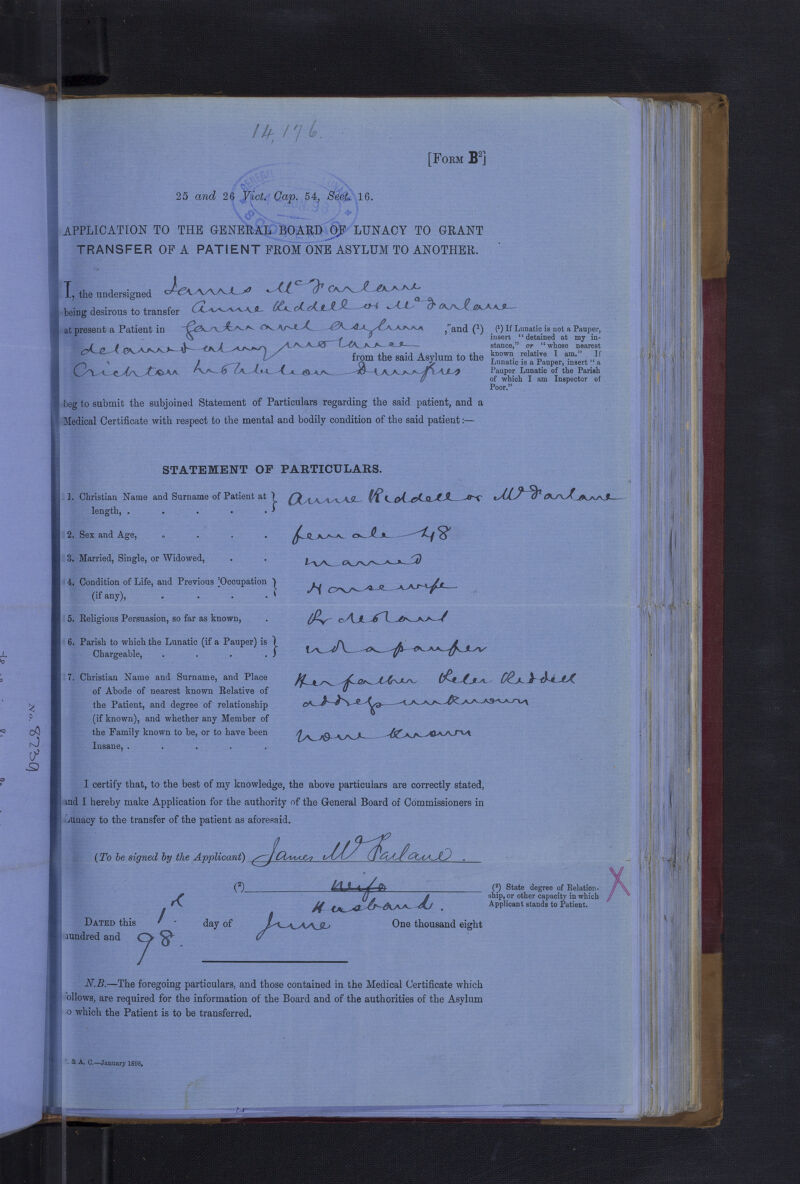 14,176.
[FORM B²]
25 and 26 Vict. Cap. 54, Sect. 16.
APPLICATION TO THE GENERAL BOARD OF LUNACY TO GRANT
TRANSFER OF A PATIENT FROM ONE ASYLUM TO ANOTHER.
I, the undersigned James McFarlane
being desirous to transfer Annie Riddell or McFarlane
at present a Patient in Gartnavel Asylum ," and (¹)
detained at my instance from the said Asylum to the
Crichton Institution Dumfries
(¹) If Lunatic is not a Pauper,
insert "detained at my in-
stance," or "whose nearest
known relative I am." If
Lunatic is a Pauper, insert "a
Pauper Lunatic of the Parish
of which I am Inspector of
Poor."
beg to submit the subjoined Statement of Particulars regarding the said patient, and a
Medical Certificate with respect to the mental and bodily condition of the said patient:—
STATEMENT OF PARTICULARS.
1. Christian Name and Surname of Patient at Annie Riddell or McFarlane
length, . . . . .
2. Sex and Age, . . . . female 48
3. Married, Single, or Widowed, . . married
4. Condition of Life, and Previous Occupation Housewife
(if any), . . . .
5. Religious Persuasion, so far as known, . Protestant
6. Parish to which the Lunatic (if a Pauper) is not a pauper
Chargeable, . . . .
7. Christian Name and Surname, and Place Her father Peter Riddell
of Abode of nearest known Relative of
the Patient, and degree of relationship address unknown
(if known), and whether any Member of
the Family known to be, or to have been none known
Insane, . . . . .
I certify that, to the best of my knowledge, the above particulars are correctly stated,
and I hereby make Application for the authority of the General Board of Commissioners in
Lunacy to the transfer of the patient as aforesaid.
(To be signed by the Applicant) James McFarlane.
(²) Wife
Husband.
(²) State degree of Relation-
ship, or other capacity in which
Applicant stands to Patient.
X
DATED this 1st day of June One thousand eight
hundred and 98.
N.B.—The foregoing particulars, and those contained in the Medical Certificate which
follows, are required for the information of the Board and of the authorities of the Asylum
to which the Patient is to be transferred.
& A. C.—January 1898.
No. 8739